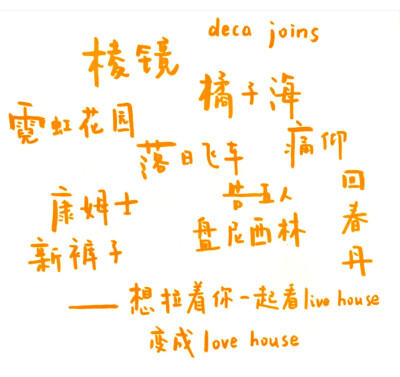 deca joins
棱镜
橘子海
霓虹花园
痛仰
落日飞车
告五人
回春丹
康姆士
盘尼西林
新裤子
——想拉着你一起看live house
变成love house